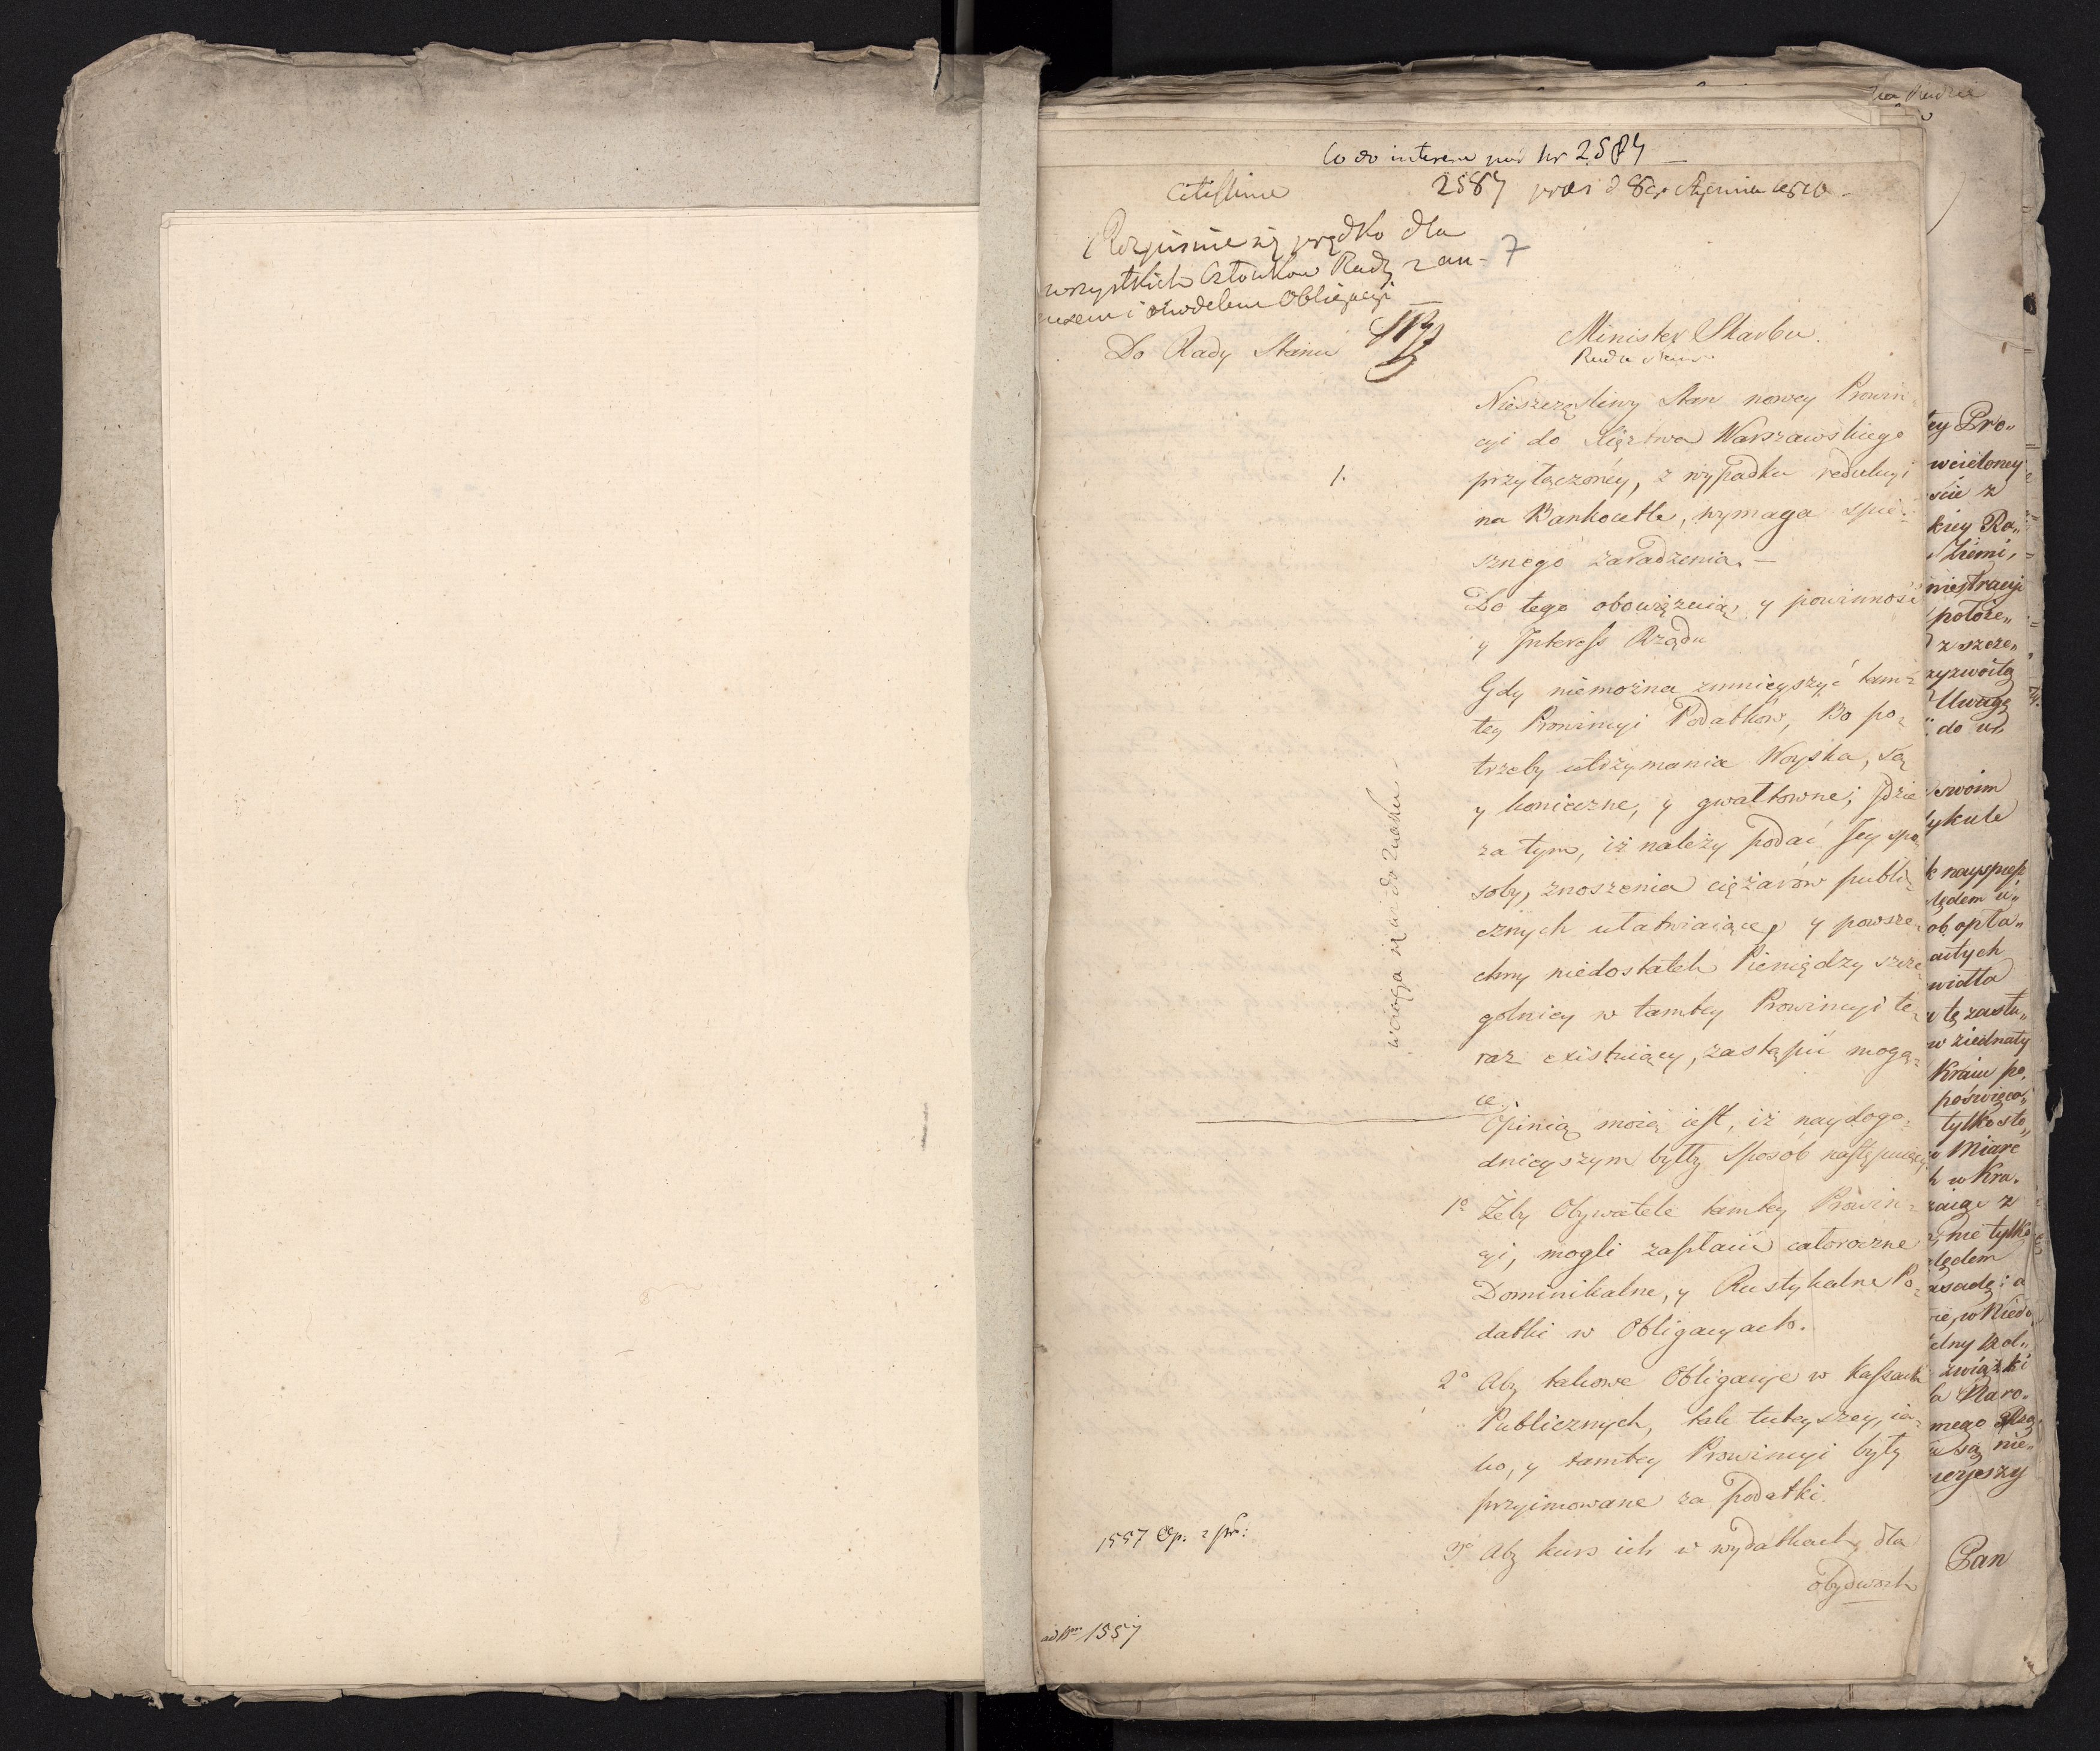 Co do interesu pod Nr 2584
citissime
2587 praes d 8go stycznia 1810
Rozpisanie się prędko dla
wszystkich Członków Rady z an-
nexem i modelem Obligacyi
7
Do Rady Stanu
Minister Skarbu.
Nieszczęśliwy Stan nowey Prowin
cyi do Xięztwa Warszawskiego
1.
przyłączoney, z wypadku redukcyi
na Bankocetle, wymaga spie-
sznego zaradzenia. —
Do tego obowiązuią, y powinność
y Interess Rządu
Gdy niemożna zmnieyszyć tam-
tey Prowincyi Podatków, Bo po-
trzeby utrzymania Woyska, są
y konieczne, y gwałtowne; Idzie
za tym, iż należy podać Jey spo
soby, znoszenia ciężarów publi-
cznych ułatwiaiące, y powsze-
chny niedostatek Pieniędzy szcze-
golniey w tamtey Prowincyi te-
raz existuiący, zastąpić mogą-
ce.
wciąga się aż do znaku
Opinią moią iest, iż naydogo-
dnieyszym byłby Sposób następuiący
1o Żeby Obywatele tamtey Prowin-
cyi, mogli zapłacić całoroczne
Dominikalne, y Rustykalne Po-
datki w Obligacyach.
2o Aby takowe Obligacye w Kassach
Publicznych, tak tuteyszey, ia-
ko, y tamtey Prowincyi były
przyimowane za Podatki.
3o Aby kurs ich w wydatkach, dla
obydwoch
1557 Ep. z pr:
ad Num 1557
tey Pro„
wcieloney
ście z
kiey Ra„
Ziemi,
niestracyi
położe„
z szcze„
zyzwoitą
Uwagę
do u
swoim
ykule
k nayspiesz
lędem u„
ob opła„
autych
widła
u tę zastu„
w ziednały
Kraiu po.
poświęco„
tylko sto„
Miarę
w Kra.
raiąc z
nie tylko
lędem
asadę: a
ie, w Nied
elny Kol„
związki
Naro„
mego Rzą
są nie„
ierpszy
Pan